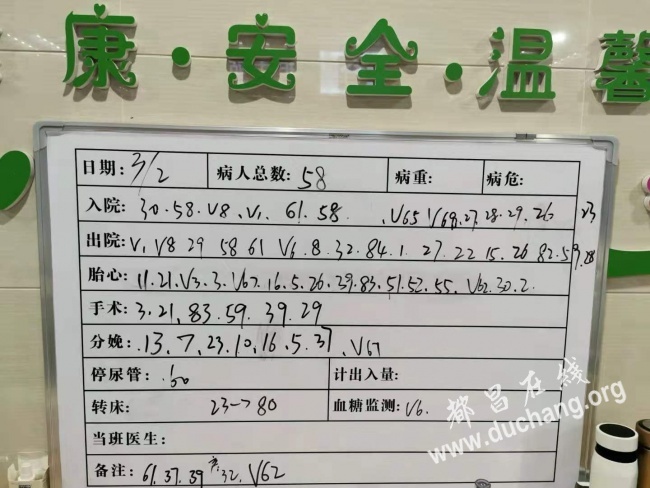 康·安全·温馨
日期: 3/2 病人总数: 58 病重: 病危:
入院: 30.58.V8.V1. 61.58. .V65 V69.27.28.29.26 23
出院: V1 V8 29 58 61 V6.8.32.84.1.27.22 15.26 82.59.28
胎心: 11.21.V3.3.V67.16.5.26.39.83.51.52.55.V62.30.2.
手术: 3.21.83.59.39.29
分娩: .13.7.23.10.16.5.37.V67
停尿管: 60 计出入量:
转床: 23→80 血糖监测: V6.
当班医生:
备注: 61.37.39 32.V62
都昌在线
www.duchang.org